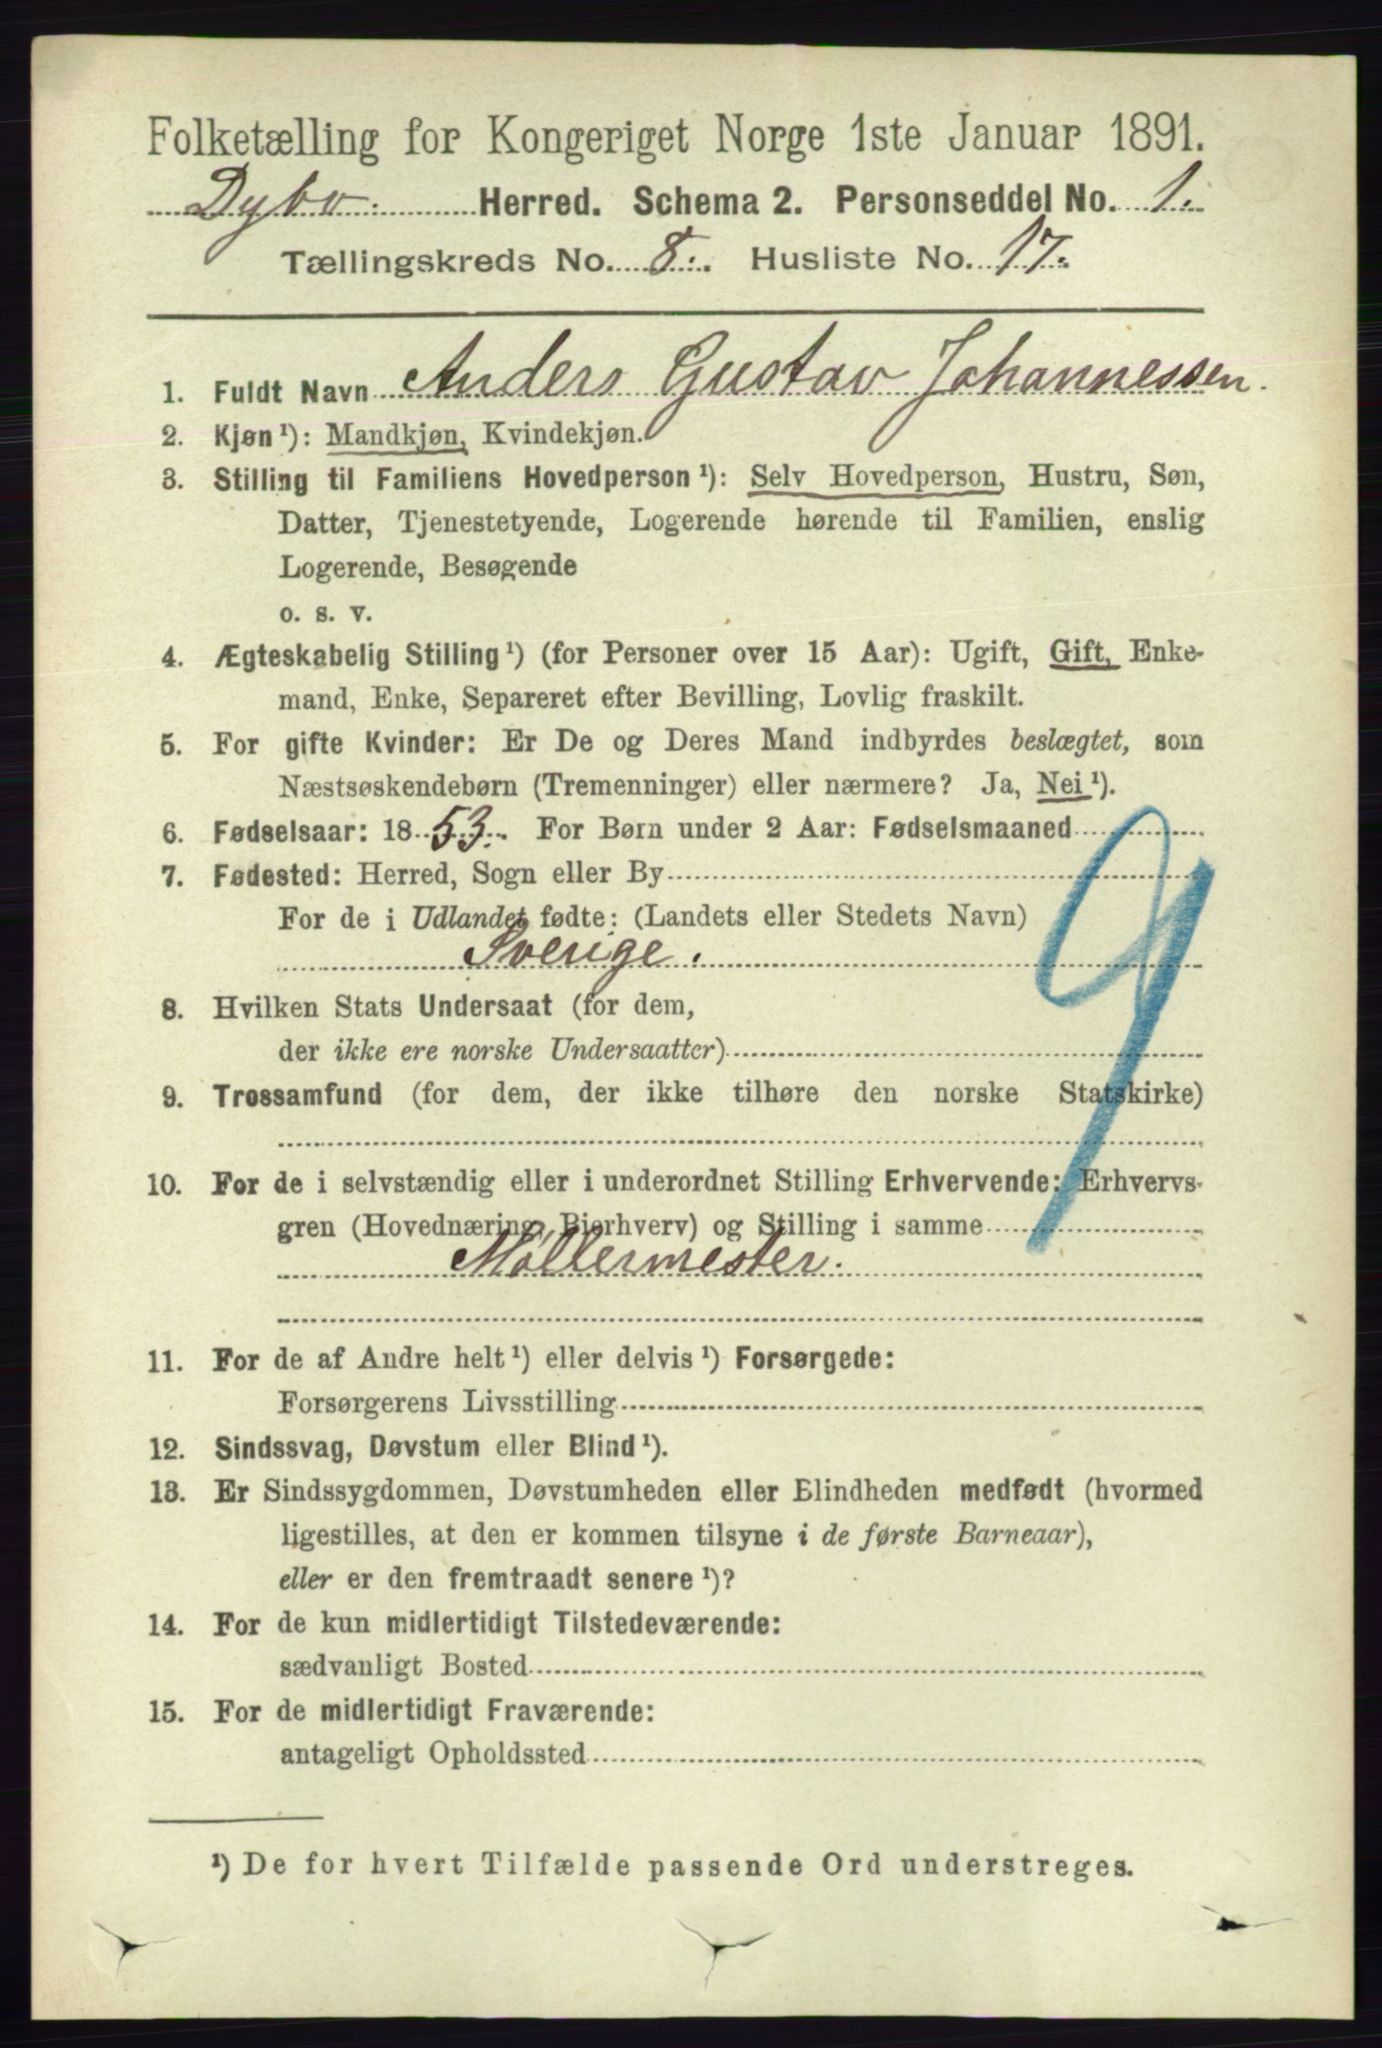 Folketælling for Kongeriget Norge 1ste Januar 1891.
Dybo. Herred. Schema 2. Personseddel No. 1.
Tællingskreds No. 8. Husliste No. 17.
1. Fuldt Navn Anders Gustav Johannessen.
2. Kjøn¹): Mandkjøn, Kvindekjøn.
3. Stilling til Familiens Hovedperson¹): Selv Hovedperson, Hustru, Søn,
Datter, Tjenestetyende, Logerende hørende til Familien, enslig
Logerende, Besøgende
o. s. v.
4. Ægteskabelig Stilling¹) (for Personer over 15 Aar): Ugift, Gift, Enke-
mand, Enke, Separeret efter Bevilling, Lovlig fraskilt.
5. For gifte Kvinder: Er De og Deres Mand indbyrdes beslægtet, som
Næstsøskendebørn (Tremenninger) eller nærmere? Ja, Nei¹).
6. Fødselsaar: 1853. For Børn under 2 Aar: Fødselsmaaned
7. Fødested: Herred, Sogn eller By
For de i Udlandet fødte: (Landets eller Stedets Navn)
Sverige.
9
8. Hvilken Stats Undersaat (for dem,
der ikke ere norske Undersaatter)
9. Trossamfund (for dem, der ikke tilhøre den norske Statskirke)
10. For de i selvstændig eller i underordnet Stilling Erhvervende: Erhvervs-
gren (Hovednæring, Bierhverv) og Stilling i samme
Møllermester.
11. For de af Andre helt¹) eller delvis¹) Forsørgede:
Forsørgerens Livsstilling
12. Sindssvag, Døvstum eller Blind¹).
13. Er Sindssygdommen, Døvstumheden eller Blindheden medfødt (hvormed
ligestilles, at den er kommen tilsyne i de første Barneaar),
eller er den fremtraadt senere¹)?
14. For de kun midlertidigt Tilstedeværende:
sædvanligt Bosted
15. For de midlertidigt Fraværende:
antageligt Opholdssted
¹) De for hvert Tilfælde passende Ord understreges.